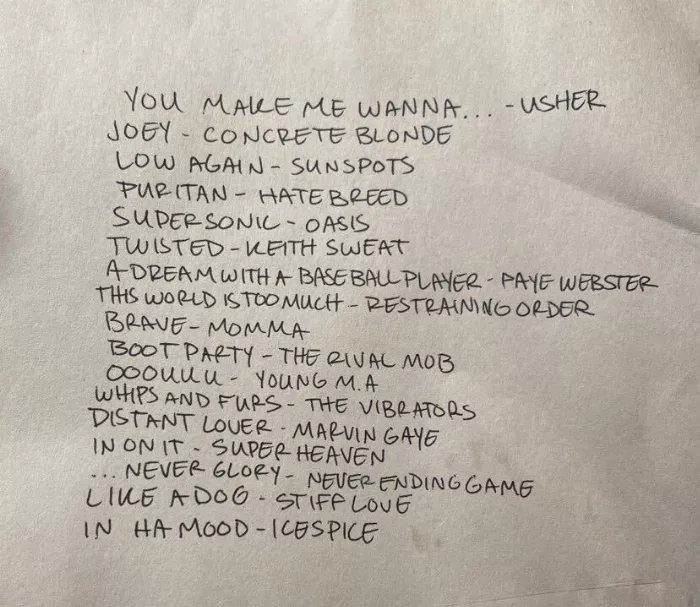 YOU MAKE ME WANNA... - USHER
JOEY - CONCRETE BLONDE
LOW AGAIN - SUNSPOTS
PURITAN - HATEBREED
SUPERSONIC - OASIS
TWISTED - KEITH SWEAT
A DREAM WITH A BASEBALL PLAYER - FAYE WEBSTER
THIS WORLD IS TOO MUCH - RESTRAINING ORDER
BRAVE - MOMMA
BOOT PARTY - THE RIVAL MOB
OOOUUU - YOUNG M.A
WHIPS AND FURS - THE VIBRATORS
DISTANT LOVER - MARVIN GAYE
IN ON IT - SUPER HEAVEN
... NEVER GLORY - NEVER ENDING GAME
LIKE A DOG - STIFF LOVE
IN HA MOOD - ICE SPICE